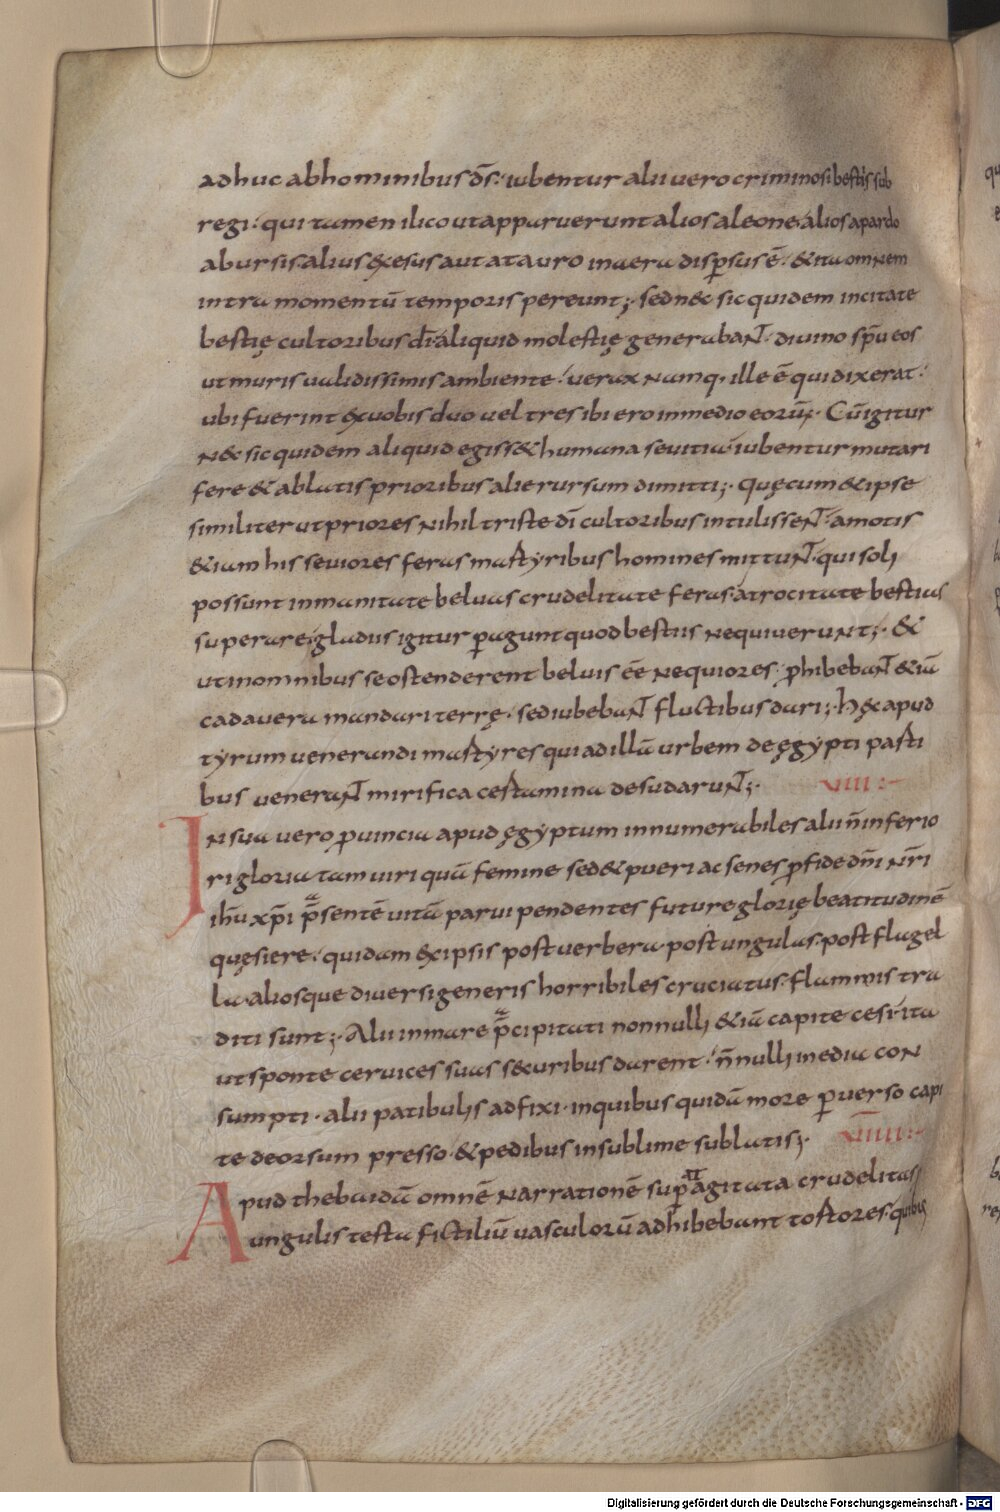 adhuc ab hominibus d̄s· iubentur alii uero criminosi bestiis sub
regi· qui tamen ilico ut apparuerunt alios a leone· alios a pardo
ab ursis alius & esus aut a tauro in aera disp̱sus ē· & ita omnem
intra momentū temporis pereunt;· sed nec sic quidem incitate
bestię cultoribus d̄i· aliquid molestię generabant· diuino sp̄u eos
ut muris ualidissimis ambiente· uerax namq· ille ē qui dixerat·
ubi fuerint ex uobis duo uel tres ibi ero in medio eorū;· Cū igitur
nec sic quidem aliquid egisset humana seuitia· iubentur mutari
fere & ablatis prioribus alie rursum dimitti;· Quęcum & ipse
similiter ut priores nihil triste d̄i cultoribus intulissent· amotis
& iam his seuiores feras martyribus homines mittunt· qui soli
possunt inmanitate beluas crudelitate feras atrocitate bestias
superare· gladiis igitur p̱agunt quod bestiis nequiuerunt;· &
ut in omnibus se ostenderent beluis ēe nequiores· p̱hibebant & iā
cadauera mandari terrę· sed iubebant fluctibus dari;· Hęc apud
tyrum uenerandi martyres qui ad illā urbem de ęgypti parti
bus uenerant mirifica certamina desudarunt;·
VIIII:-
In sua uero p̱uincia apud ęgyptum innumerabiles alii n̄ inferio
ri gloria tam uiri quā femine sed & pueri ac senes p̱ fide dn̄i nr̄i
ih̄u xp̄i p̄sentē uitā parui pendentes future glorię beatitudinē
quęsiere· quidam ex ipsis post uerbera post ungulas· post flagel
la· aliosque diuersi generis horribiles cruciatus· flammis tra
diti sunt;· Alii in mare p̄cipitati nonnulli & iā capite cesi· ita
ut sponte ceruices suas securibus darent· n̄nulli inedia con
sumpti· alii patibulis adfixi· in quibus quidā more p̱uerso capi
te deorsum presso· & pedibus in sublime sublatis;·
XIIII:-
Apud thebaidā omnē narrationē sup̱ agitata crudelitas
ungulis testa fictiliū uasculorū adhibebant tortores quibus
Digitalisierung gefördert durch die Deutsche Forschungsgemeinschaft - DFG